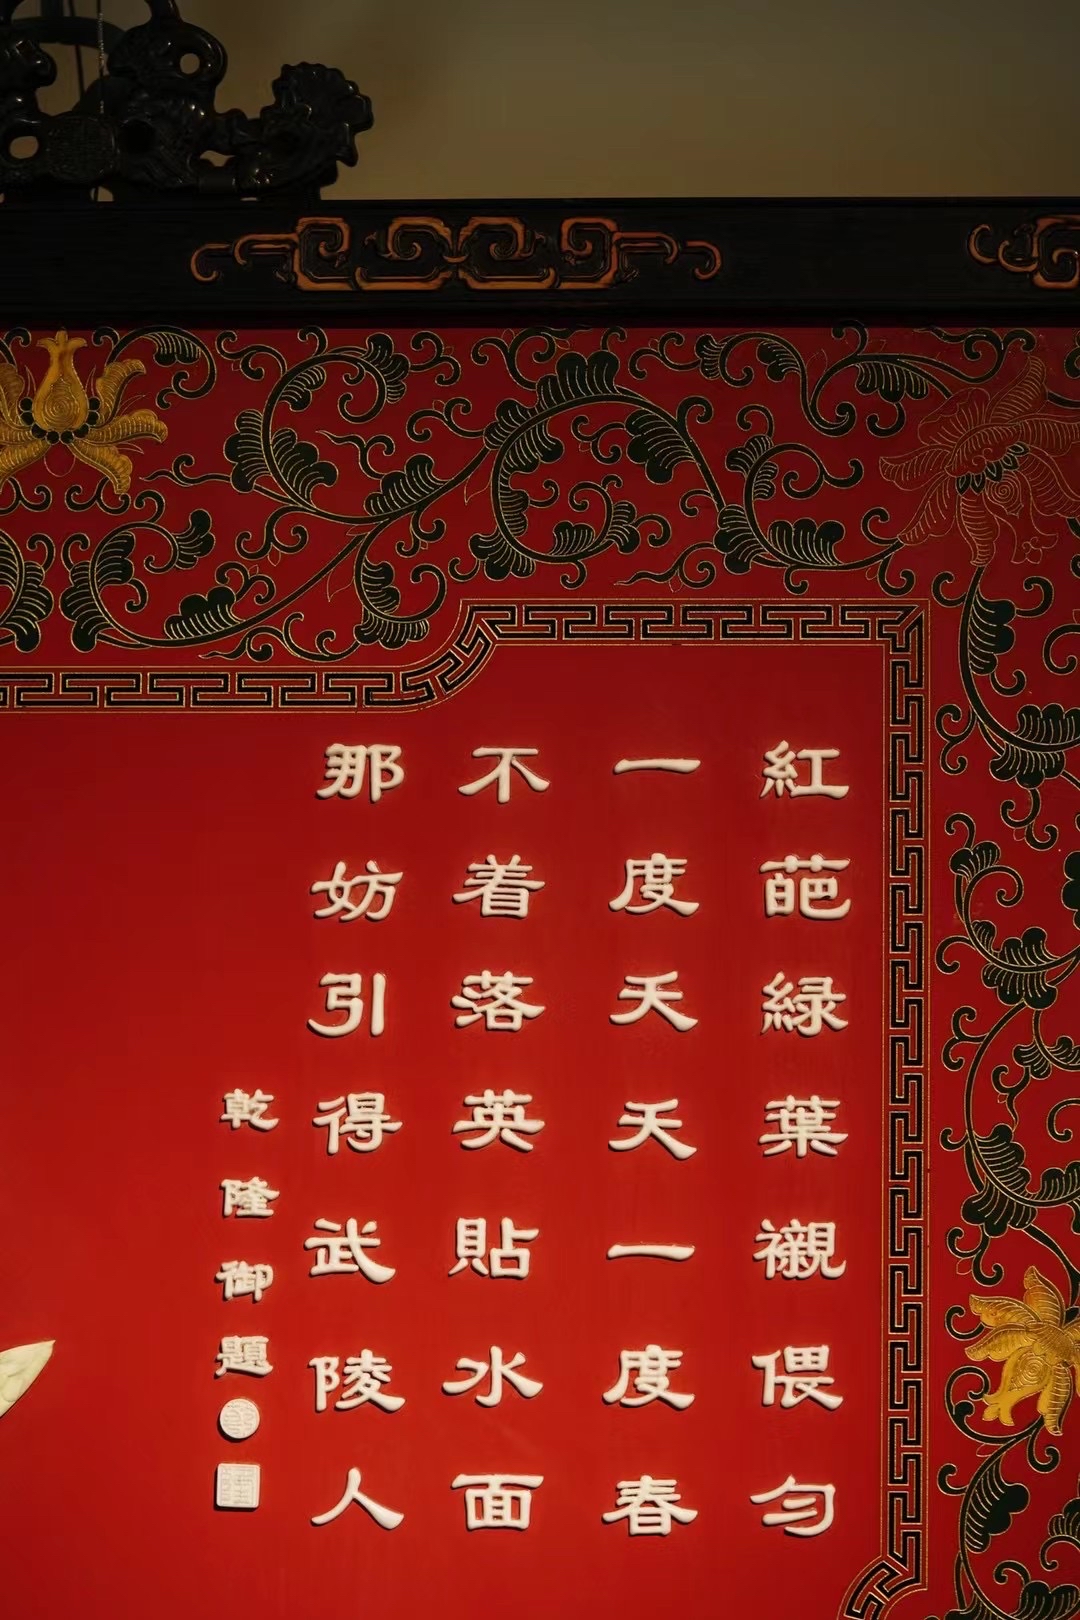 紅葩綠葉襯偎勻
一度夭夭一度春
不着落英貼水面
那妨引得武陵人
乾隆御題